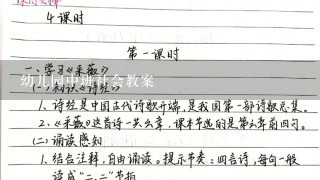 4课时
第一课时
一、学习《采薇》
幼儿园中班社会教案
(一)知识《诗经》
1、诗经是中国古代诗歌开端,是我国第一部诗歌总集。
2、《采薇》这首诗一共六章,课本节选的是第六章前四句。
(二)诵读感知
1、结合注释,自由诵读。提示节奏:四言诗,每句一般
读成“二、二”节拍